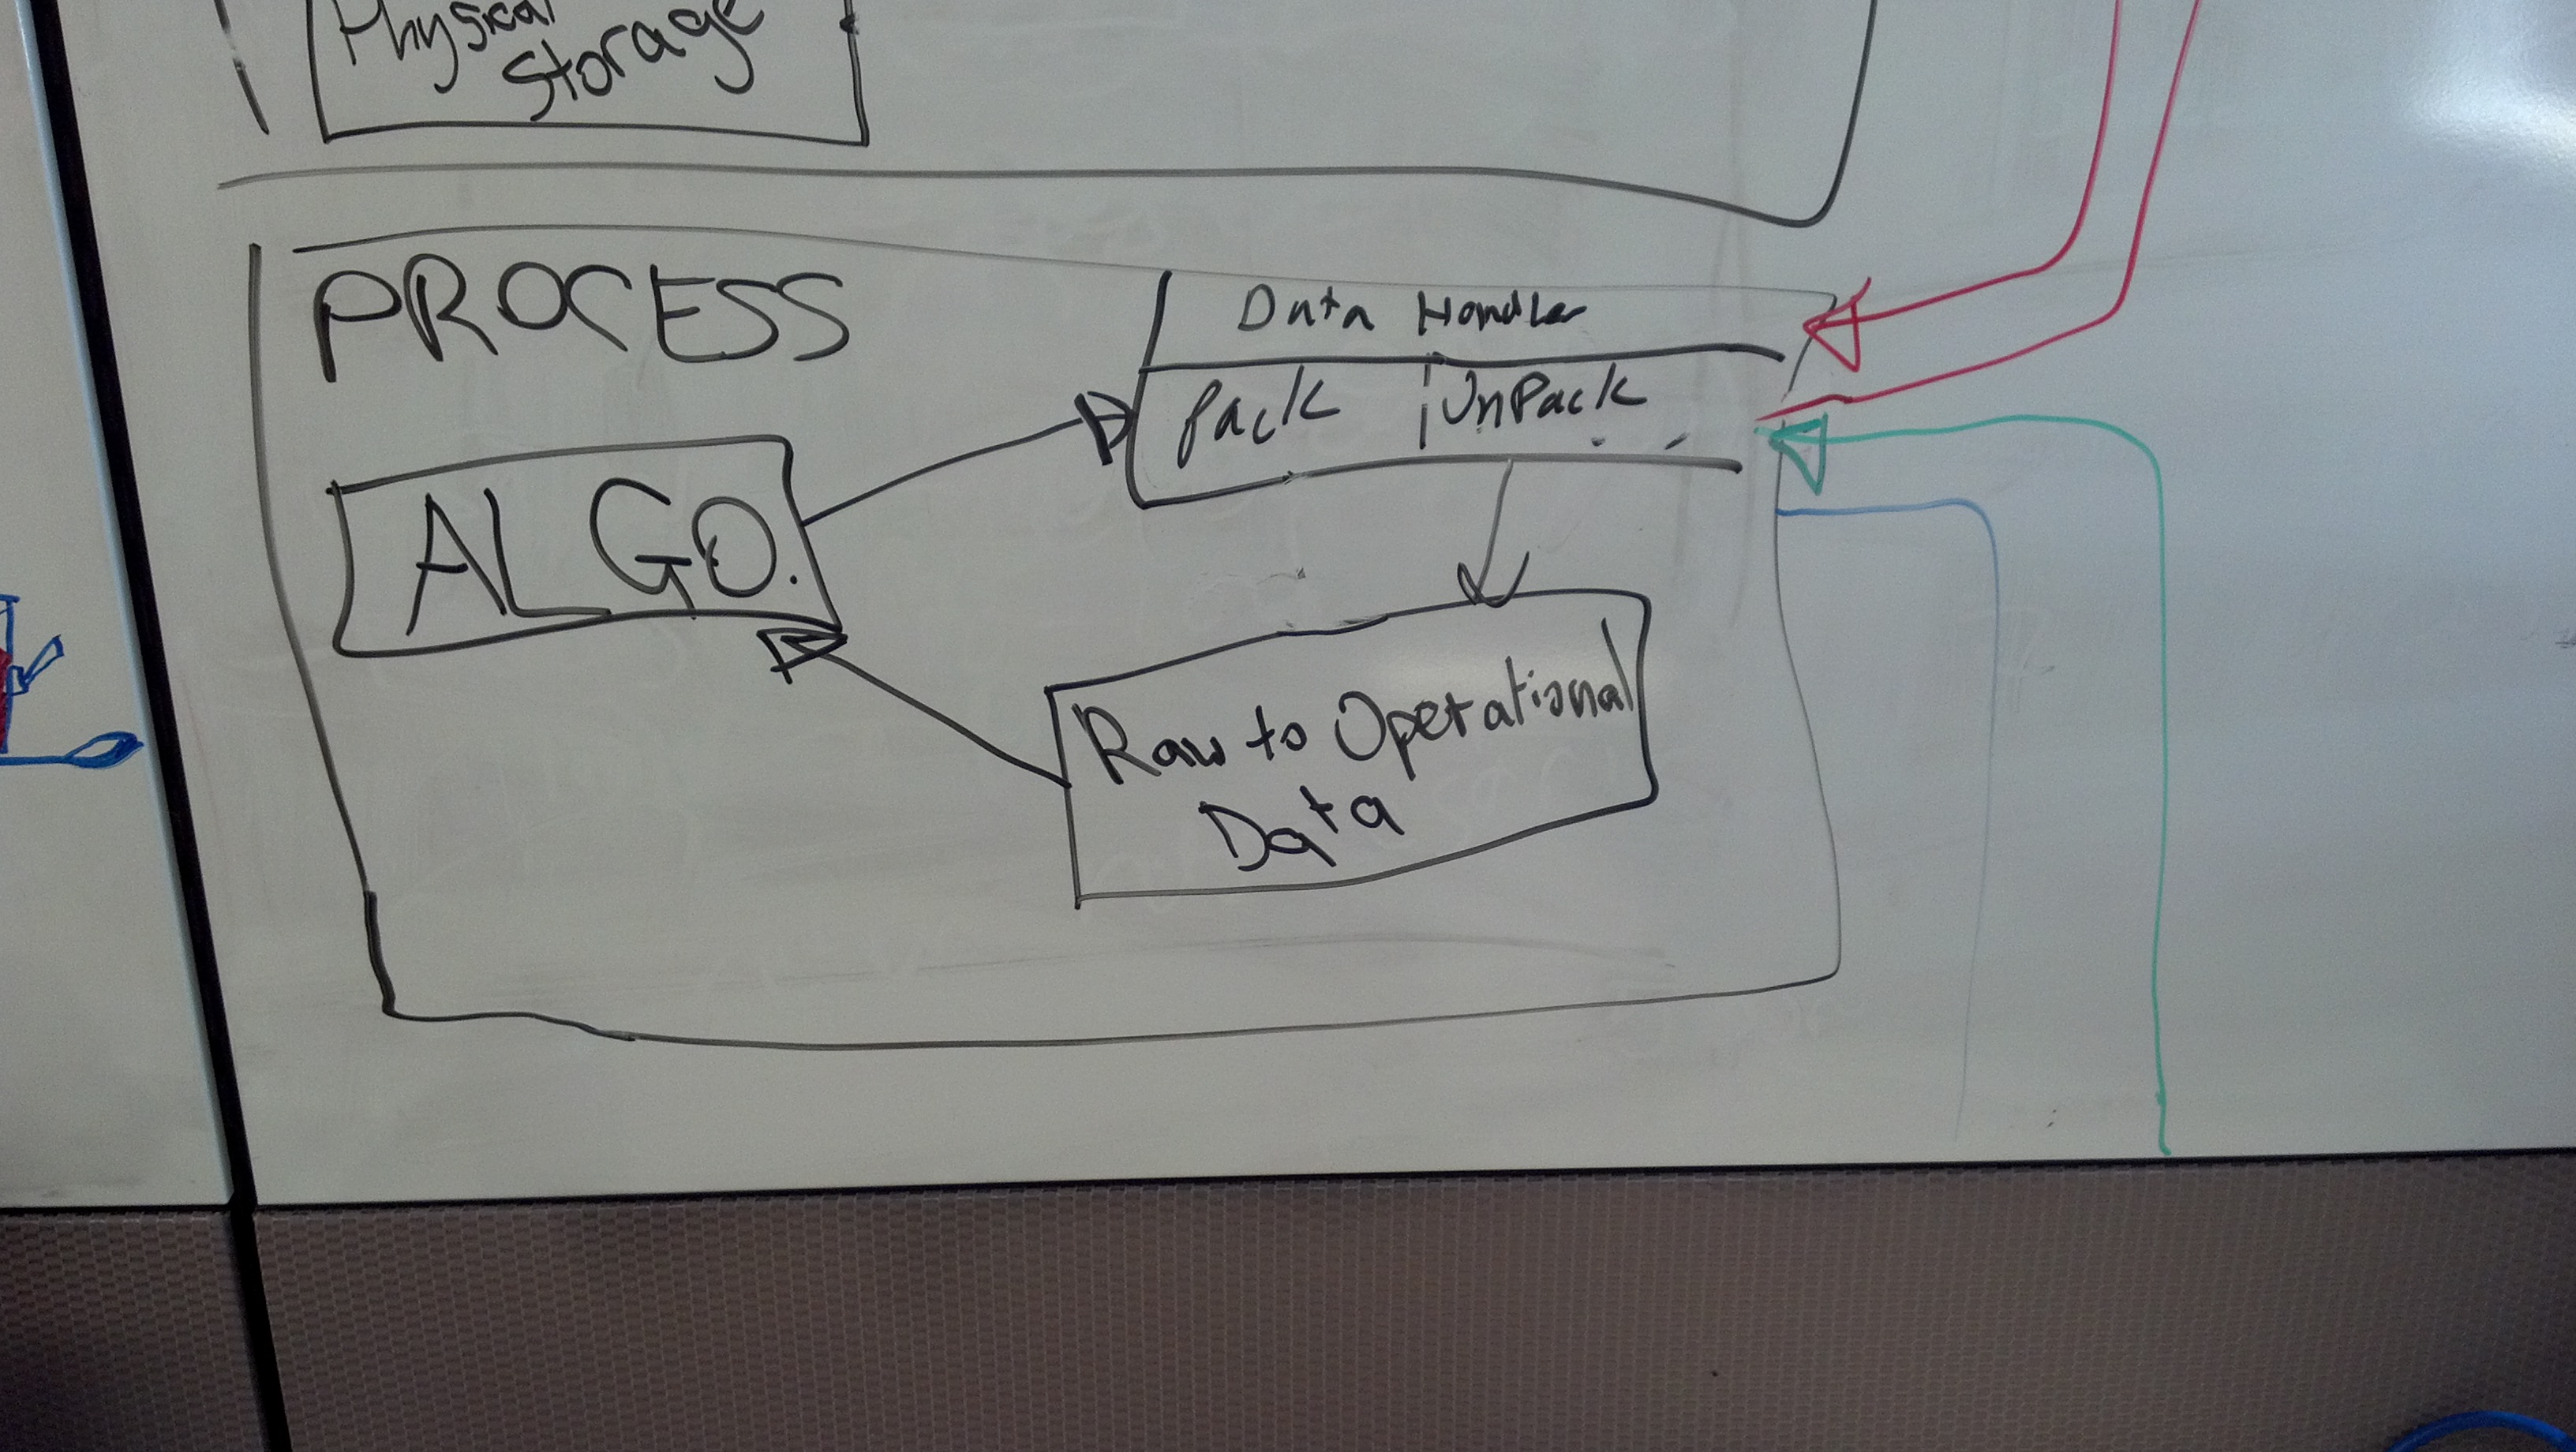 Physical
Storage
PROCESS
Data Handler
Pack UnPack
ALGO.
Raw to Operational
Data